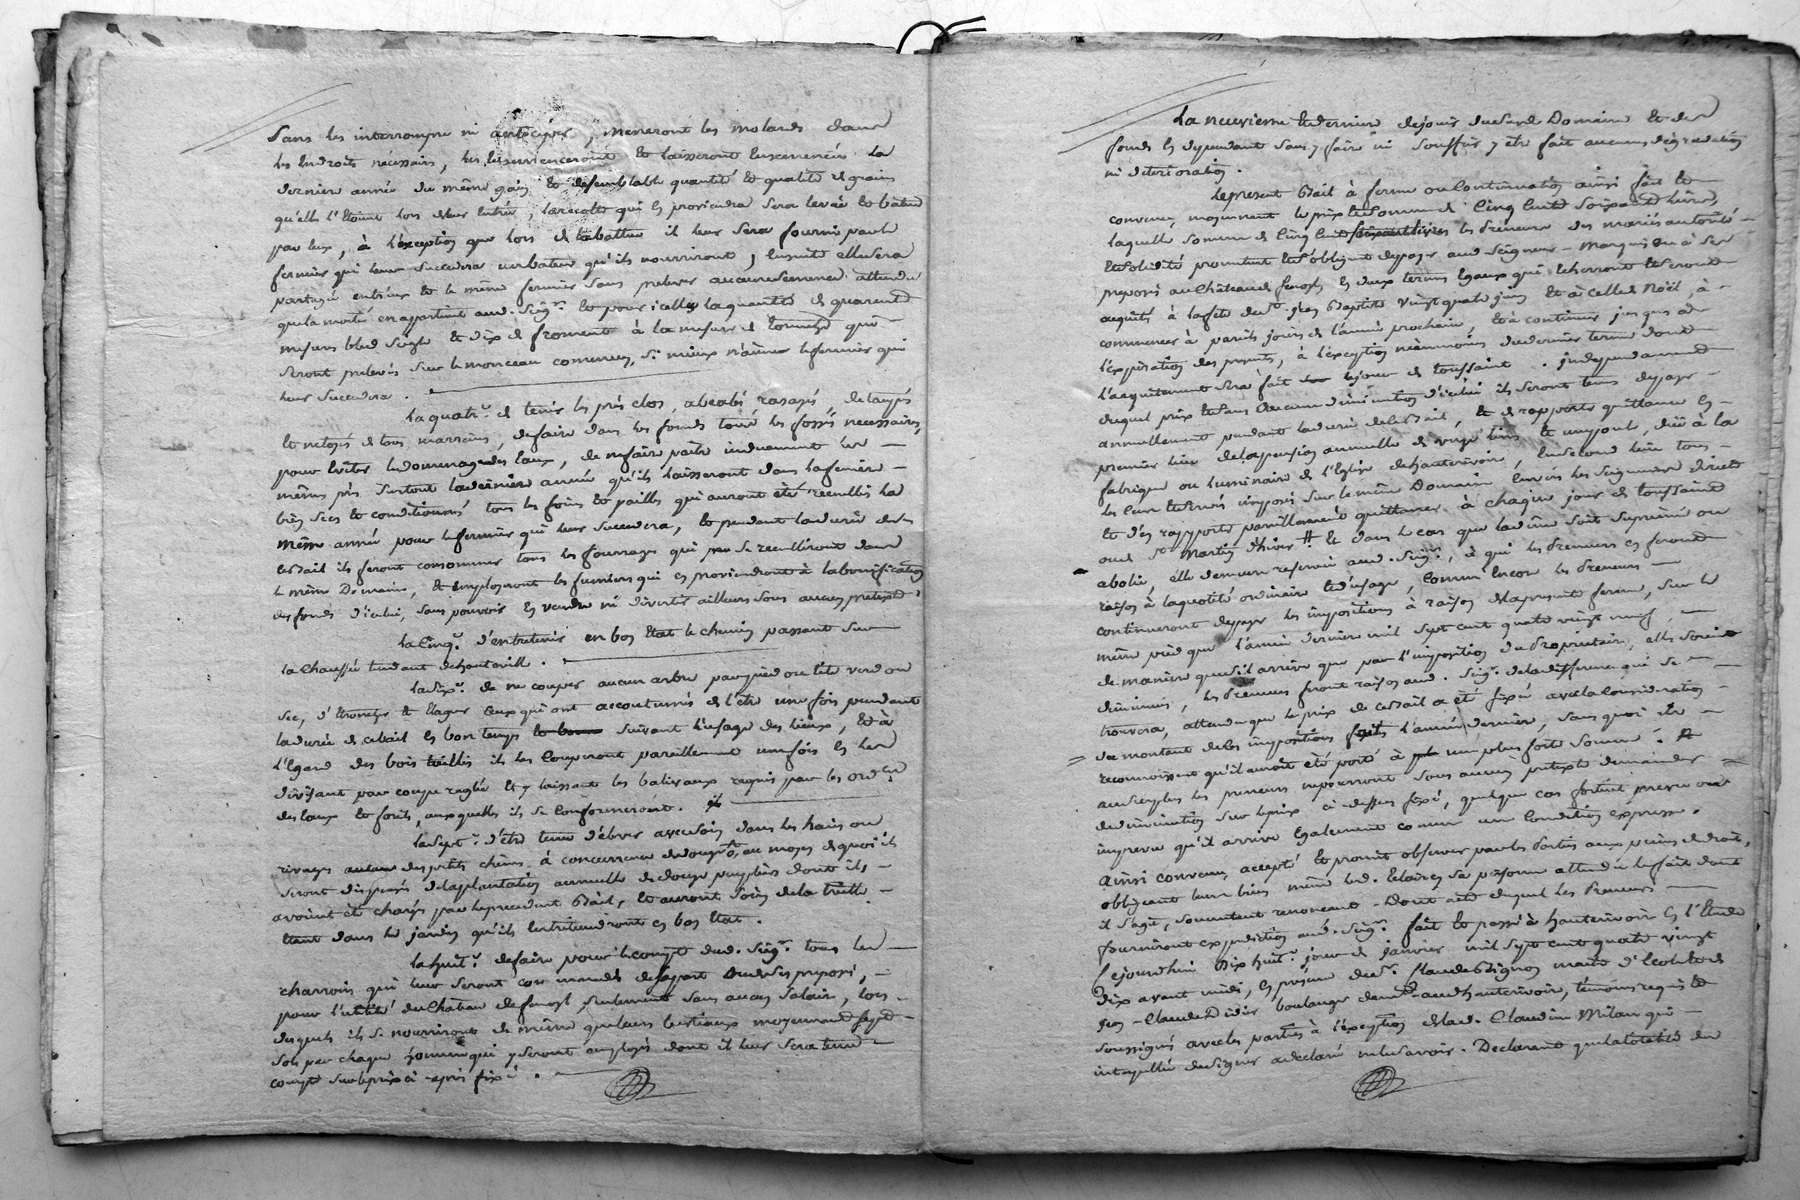 Sans les interrompre ni anticiper, meneront les molards dans
les endroits nécessaires, les ensemenceront et laisseront ensemencés la
derniere année du même gain et de semblable quantité et qualité de grains
qu'elle l'étoient lors de leur entrée, la recolte qui en proviendra sera levée et batue
par eux, à l'exception que lors de la battue il leur sera fourni par le
fermier qui leur succedera un bateur qu'ils nourriront, ensuite elle sera
partagée entr'eux et le même fermier sans prelever aucune semence attendu
que la moitié en appartient aud. Seigr. et pour icelle la quantité de quarante
mesures bled seigle et dix de froment à la mesure de qui
seront prelevés sur le monceau commun, si mieux n'aime le fermier qui
leur succedera.
La quatr.e de tenir les prés clos, rasés de taupes
et netoyés de tous marrains, de faire dans les fonds tous les fossés necessaires,
pour eviter le dommage des eaux, de ne faire paitre induement les
mêmes prés surtout la derniere année qu'ils laisseront dans la feniere
bien secs et conditionnés tous les foins et pailles qui auront été recueillis la
même année pour le fermier qui leur succedera, et pendant la durée du
bail ils feront consommer tous les fourrages qui se recueilliront dans
le même Domaine, et employeront les fumiers qui en proviendront à la bonification
des fonds d'icelui, sans pouvoir en vendre ni divertir ailleurs sous aucun pretexte.
La cinq.e d'entretenir en bon etat le chemin passant sur
la chaussée tendant de hauteville.
La six.e de ne couper aucun arbre par pied ou tête verd ou
sec, d'étroncher et elaguer ceux qui ont accoutumés de l'être une fois pendant
la durée de ce bail en bon temps suivant l'usage des lieux, et à
l'égard des bois taillis ils les couperont pareillement une fois en les
divisant par coupe reglée et y laissant les baliveaux requis par les ord.ces
des eaux et forêts, auxquelles ils se conformeront.
La sept.e d'être tenu d'élever avec soin dans les haies ou
rivages autant de petits chênes à concurrence de douze, au moyen de quoi ils
seront dispensés de la plantation annuelle de douze peupliers dont ils
avoient été chargés par le precedent bail, et auront soin de la treille
étant dans le jardin qu'ils entretiendront en bon etat.
La huit.e de faire pour le compte dud. Seigr. tous les
charrois qui leur seront commandés de sa part ou de ses preposés,
pour l'utilité du chateau de fenoyl seulement sans aucun salaire, lors
desquels ils se nourriront de même que leurs bestiaux moyennant sept
sols par chaque homme qui y seront employés dont il leur sera tenu
compte sur le prix ci-après fixé.
La neuvieme et derniere de jouir dud. Domaine et des
fonds en dependant sans y faire ni souffrir y être fait aucunes dégradation
ni déterioration.
Le present bail à ferme ou continuation ainsi fait et
convenu, moyennant le prix et somme de cinq cent soixante livres,
laquelle somme de cinq cent soixante livres les preneurs des mariés autorité
et solidité promettent et s'obligent de payer aud. Seigneur Marquis ou à ses
preposés au château de fenoyl en deux termes égaux qui echerront et seront
acquittés à la fête de St. jean Baptiste vingt quatre juin et à celle de Noël, à
commencer à pareils jours de l'année prochaine, et à continuer jusques à
l'expiration des presentes, à l'exception néanmoins du dernier terme dont
l'acquittement sera fait le jour de toussaint. independament
duquel prix et sans aucune diminution d'icelui ils seront tenus de payer
annuellement pendant la durée de ce bail, et de rapporter quittance en
premier lieu de la pension annuelle de vingt livres et un poul, duë à la
fabrique ou luminaire de l'Eglise de hauterivoire, en second lieu tous
les cens et servis imposés sur le même Domaine envers les Seigneurs directs
et d'en rapporter pareillement quittance à chaque jour de toussaint
ou de St. Martin d'hiver # Et dans le cas que la dîme soit suprimée ou
abolie, elle demeure reservée aud. Seigr., à qui les preneurs en feront
raison à la quotité ordinaire et d'usage, comm'encor les preneurs
continueront de payer les impositions à raison de la presente ferme, sur le
même pied que l'année derniere mil sept cent quatre vingt neuf,
de maniere que s'il arrive que par l'imposition du proprietaire, elles soient
diminuées, les preneurs feront raison aud. Seigr. de la difference qui se
trouvera, attendu que le prix de ce bail a été fixé avec la consideration
du montant desd. impositions faites l'année derniere, sans quoi ils
reconnoissent qu'il auroit été porté à une plus forte somme. Et
au surplus les preneurs ne pourront sous aucun pretexte demander
de diminution sur le prix ci-dessus fixé, quelque cas fortuit prevu ou
imprevu qu'il arrive egalement comme une condition expresse.
Ainsi convenu, accepté et promit observer par les Parties aux peines de droit,
obligeant leurs biens même led. Claires sa personne attendu le fait dont
il s'agit, soumettant renonceant. Dont acte duquel les Preneurs
fourniront expedition aud. Seigr. fait et passé à hauterivoire en l'Etude
le jourd'hui dix huit.e jour de janvier mil sept cent quatre vingt
dix avant midi, en presence de Sr. Claude Bignon maitre d'Ecole et de
jean-Claude Didier boulanger demt. aud. hauterivoire, temoins requis et
soussignés avec les parties à l'exception de lad. Claudine Milan qui
interpellée de signer a declaré ne le savoir. Declarant que la totalité du